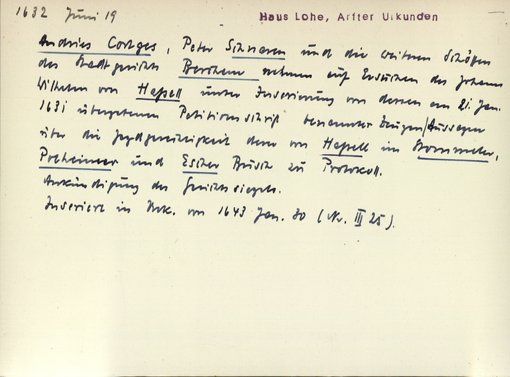 1632 Juni 19
Haus Lohe, Arfter Urkunden
Andries Cortges, Peter und die weiteren Schöffen
des Stadtgerichts Berchem nehmen auf Ersuchen des Johann
Wilhelm von Hessell unter Inserierung von dessen am 21. Jan.
1631 übergebenen Petitionsschrift benannter Zeugen Aussagen
über die Jagdgerechtigkeit derer von Hessell im
und Escher Büsch zu Protokoll.
Ankündigung des Gerichtssiegels.
Inseriert in Urk. von 1643 Jan. 30 (Nr. III 25).